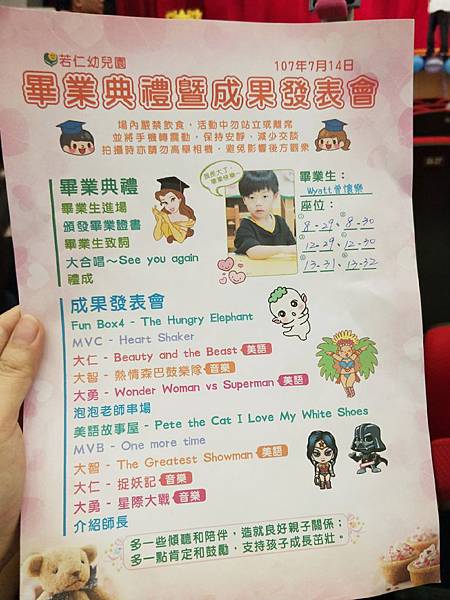 若仁幼兒園
107年7月14日
畢業典禮暨成果發表會
場內嚴禁飲食，活動中勿站立或離席
並將手機轉震動，保持安靜、減少交談
拍攝時亦請勿高舉相機，避免影響後方觀眾
畢業典禮
畢業生進場
頒發畢業證書
畢業生致詞
大合唱～See you again
禮成
我長大了，
畢業快樂~
畢業生：
Wyatt曾懷樂
座位：
① 8-29、② 8-30
③ 12-29、④ 12-30
⑤ 13-31、⑥ 13-32
成果發表會
Fun Box4 - The Hungry Elephant
MVC - Heart Shaker
大仁 - Beauty and the Beast 美語
大智 - 熱情森巴鼓樂隊 音樂
大勇 - Wonder Woman vs Superman 美語
泡泡老師串場
美語故事屋 - Pete the Cat I Love My White Shoes
MVB - One more time
大智 - The Greatest Showman 美語
大仁 - 捉妖記 音樂
大勇 - 星際大戰 音樂
介紹師長
多一些傾聽和陪伴，造就良好親子關係；
多一點肯定和鼓勵，支持孩子成長茁壯。